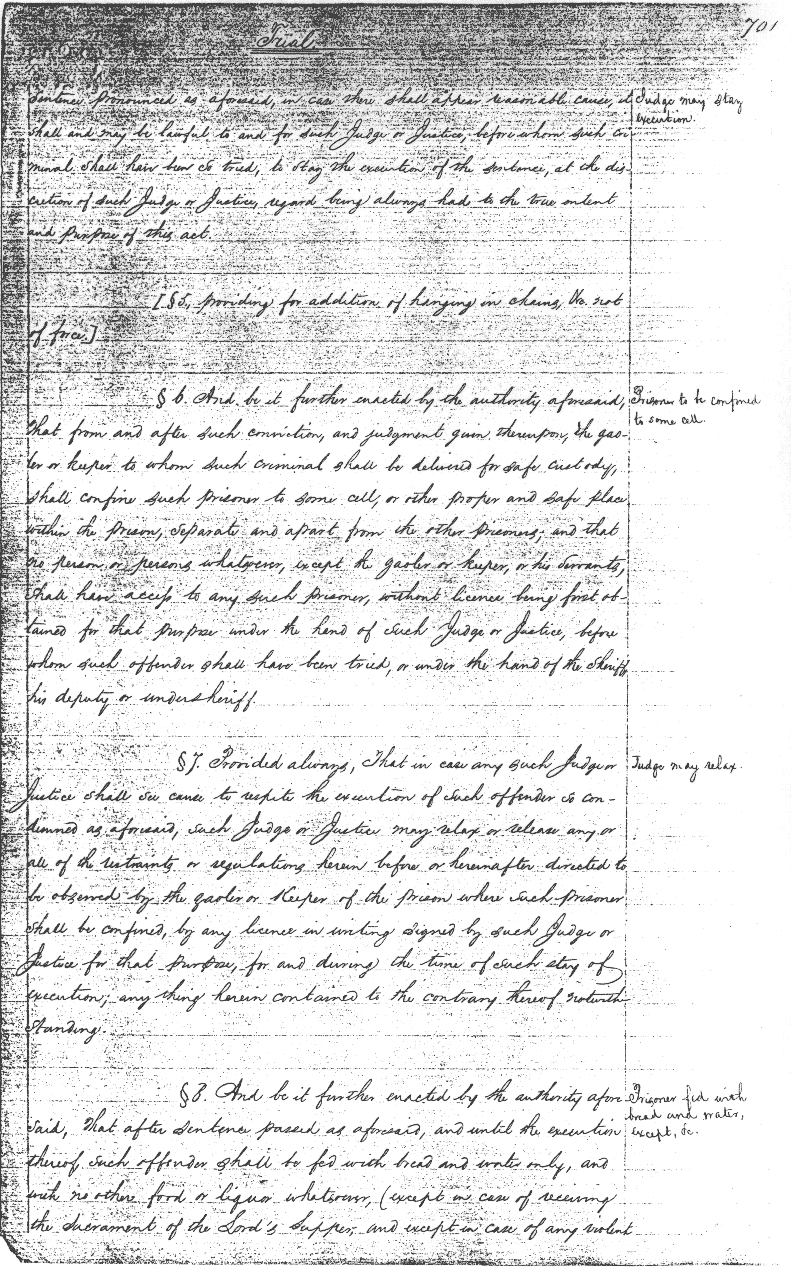 701
Trial.
Sentence pronounced as aforesaid, in case there shall appear reasonable cause, it
shall and may be lawful to and for such Judge or Justice, before whom such cri-
minal shall have been so tried, to stay the execution of the sentence, at the dis-
cretion of such Judge or Justice, regard being always had to the true intent
and purpose of this act.
Judge may stay
execution.
[§5, providing for addition of hanging in chains, &c. not
of force.]
§ 6. And be it further enacted by the authority aforesaid,
That from and after such conviction, and judgment given thereupon, the gao-
ler or keeper to whom such criminal shall be delivered for safe custody,
shall confine such prisoner to some cell, or other proper and safe place
within the prison, separate and apart from the other prisoners; and that
no person or persons whatever, except the gaoler or keeper, or his servants,
shall have access to any such prisoner, without licence being first ob-
tained for that purpose under the hand of such Judge or Justice, before
whom such offender shall have been tried, or under the hand of the Sheriff
his deputy or undersheriff.
Prisoner to be confined
to some cell.
§7. Provided always, That in case any such Judge or
Justice shall see cause to respite the execution of such offender so con-
demned as aforesaid, such Judge or Justice may relax or release any or
all of the restraints or regulations herein before or hereinafter directed to
be observed by the gaoler or Keeper of the prison where such prisoner
shall be confined, by any licence in writing signed by such Judge or
Justice for that purpose, for and during the time of such stay of
execution; any thing herein contained to the contrary thereof notwith-
standing.
Judge may relax.
§8. And be it further enacted by the authority afore-
said, That after sentence passed as aforesaid, and until the execution
thereof, such offender shall be fed with bread and water only, and
with no other food or liquor whatsoever, (except in case of receiving
the Sacrament of the Lord's Supper, and except in case of any violent
Prisoner fed with
bread and water,
except, &c.